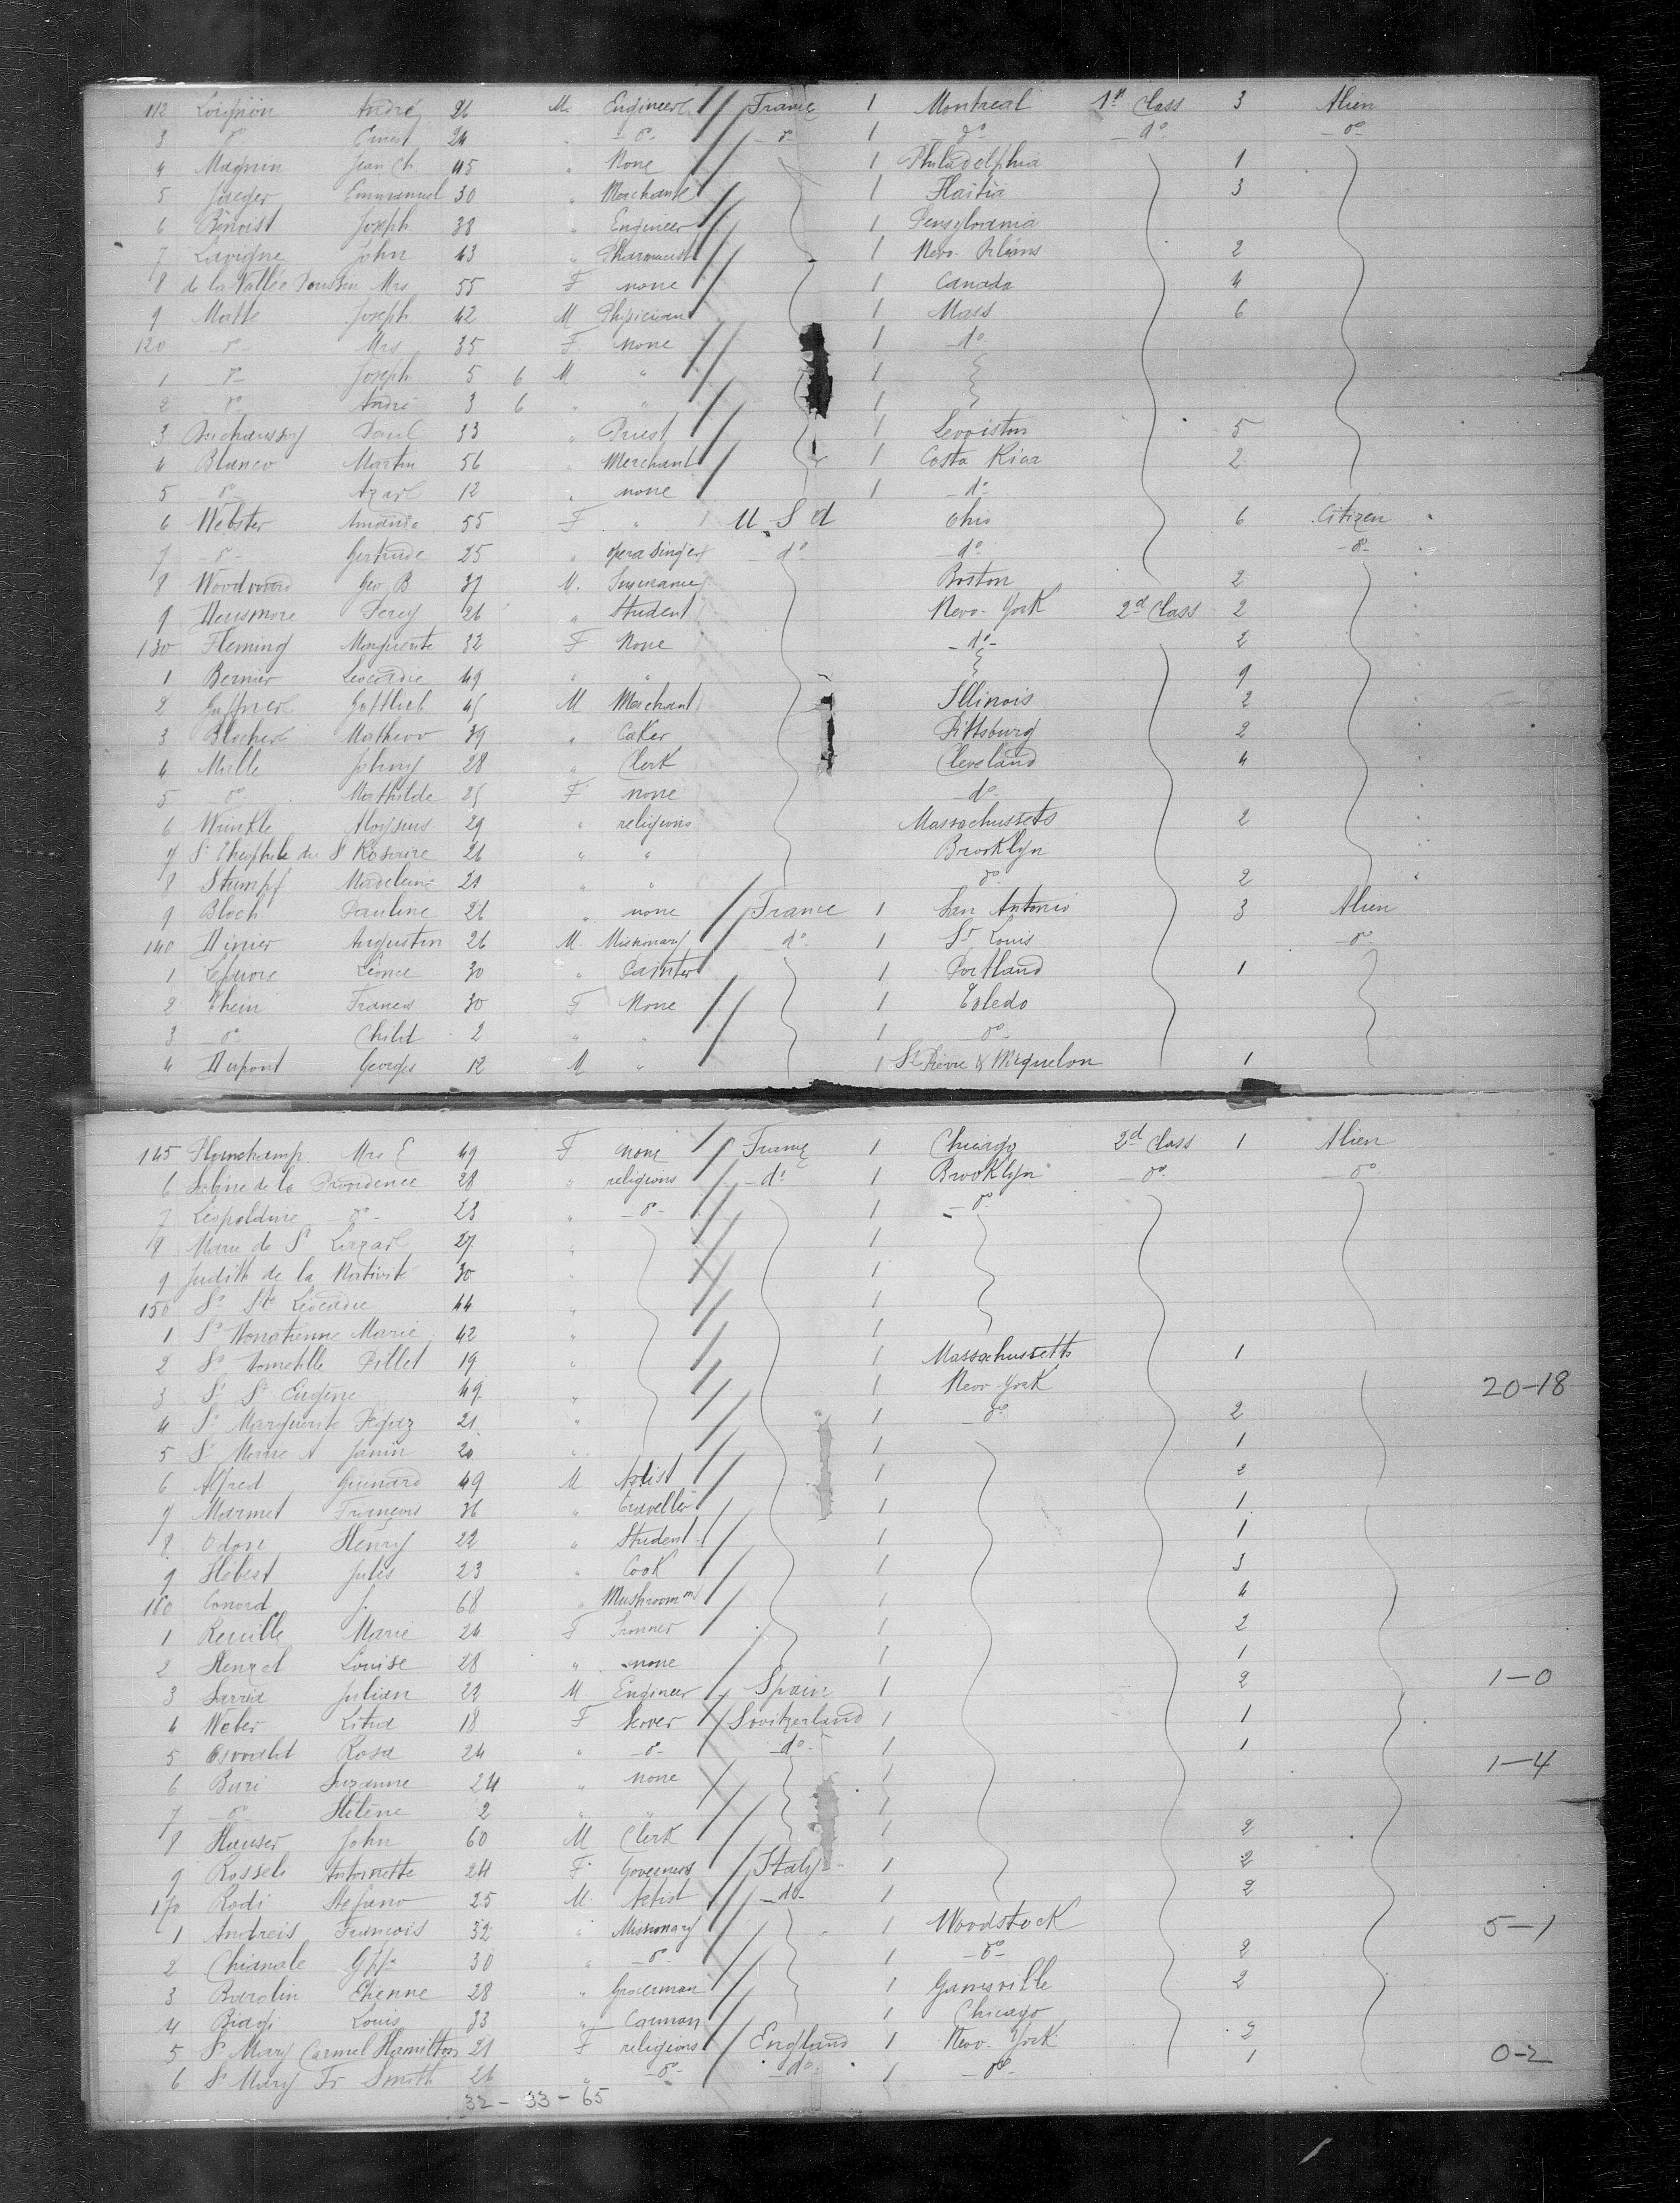 112 André 26 M. Engineer France 1 Montreal 1st Class 3 Alien
3 do Ernest 24 " do do 1 do do do
4 Magnin Jean Ch 45 " None 1 Philadelphia 1
5 Jaeger Emmanuel 30 " Merchant 1 Haitia 3
6 Benoist Joseph 38 " Engineer 1 Pensylvania
7 Lavigne John 43 " Pharmacist 1 New. Orléans 2
8 de la Vallée Poussin Mrs 55 F none 1 Canada 4
9 Matte Joseph 42 M Physician 1 Mass 6
120 do Mrs 35 F none 1 do
1 do Joseph 5 6 M " 1
2 do André 3 6 " " 1
3 Duchaussoy Paul 33 " Priest 1 Lewiston 5
4 Blanco Martin 56 " Merchant 1 Costa Rica 2
5 do 12 " none 1 do
6 Webster Amanda 55 F " U. S a Ohio 6 Citizen
7 do Gertrude 25 " opera Singer do do do
8 Woodward Geo B. 37 M. Insurance Boston 2
9 Densmore Percy 26 " Student New-York 2d Class 2
130 Fleming Marguerite 32 F None do 2
1 Bernier Leocadie 49 " " 9
2 Gottlieb 45 M Merchant Illinois 2
3 Blocher Mathew 39 " Caker Pittsburg 2
4 Malle Johny 28 " Clerk Cleveland 4
5 do Mathilde 25 F none do
6 Winkle Aloysius 29 " religious Massachussets 2
7 Sr Théophile du St Rosaire 26 " " Brooklyn
8 Stumpf Madeleine 21 " " do 2
9 Bloch Pauline 26 " none France 1 San Antonio 3 Alien
140 Augustin 26 M Missionary do 1 St Louis do
1 Léonce 30 " Painter 1 Portland 1
2 Thein Frances 30 F None 1 Toledo
3 do Child 2 " " 1 do
4 Dupont Georges 12 M " 1 St Pierre & Miquelon 1
145 Mrs E 49 F none France 1 Chicago 2d Class 1 Alien
6 Sabine de la Providence 28 " religious do 1 Brooklyn do do
7 Léopoldine do 23 " do 1 do
8 Marie de St Lazare 27 " 1
9 Judith de la Nativité 30 " 1
150 Sr Ste Léocadie 44 " 1
1 Sr Donatienne Marie 42 " 1
2 Sr Pillet 19 " 1 Massachussetts 1
3 Sr St Eugène 49 " 1 New-York 20-18
4 Sr Marguerite 21 " 1 do 2
5 Sr Marie A Janin 20 " 1 1
6 Alfred Guinard 49 M Artist 1 2
7 Marmet François 36 " traveller 1 1
8 Odon Henry 22 " Student 1 1
9 Hébert Jules 23 " Cook 1 3
160 Conord J. 68 " Mushroom 1 4
1 Reuille Marie 24 F 1 2
2 Henzel Louise 28 " none 1 1
3 Sarria Julian 22 M Engineer Spain 1 2 1-0
4 Weber 18 F Server Switzerland 1 1
5 Oswald Rosa 24 " do do 1 1
6 Buri Suzanne 24 " none 1 1-4
7 do Hélène 2 " " 1
8 Hauser John 60 M Clerk 1 2
9 Rosseli Antoinette 24 F Governess Italy 1 2
170 Rodi Stefano 25 M. Artist do 1 2
1 Andreis François 32 " Missionary 1 Woodstock 5-1
2 Chianale 30 " do 1 do 2
3 Etienne 28 " Grocerman 1 Gainsville 2
4 Biagi Louis 33 " Carman 1 Chicago
5 Sr Mary Carmel Hamilton 21 F religious England 1 New-York 2
6 Sr Mary Fr Smith 26 " do do 1 do 1 0-2
32-33-65